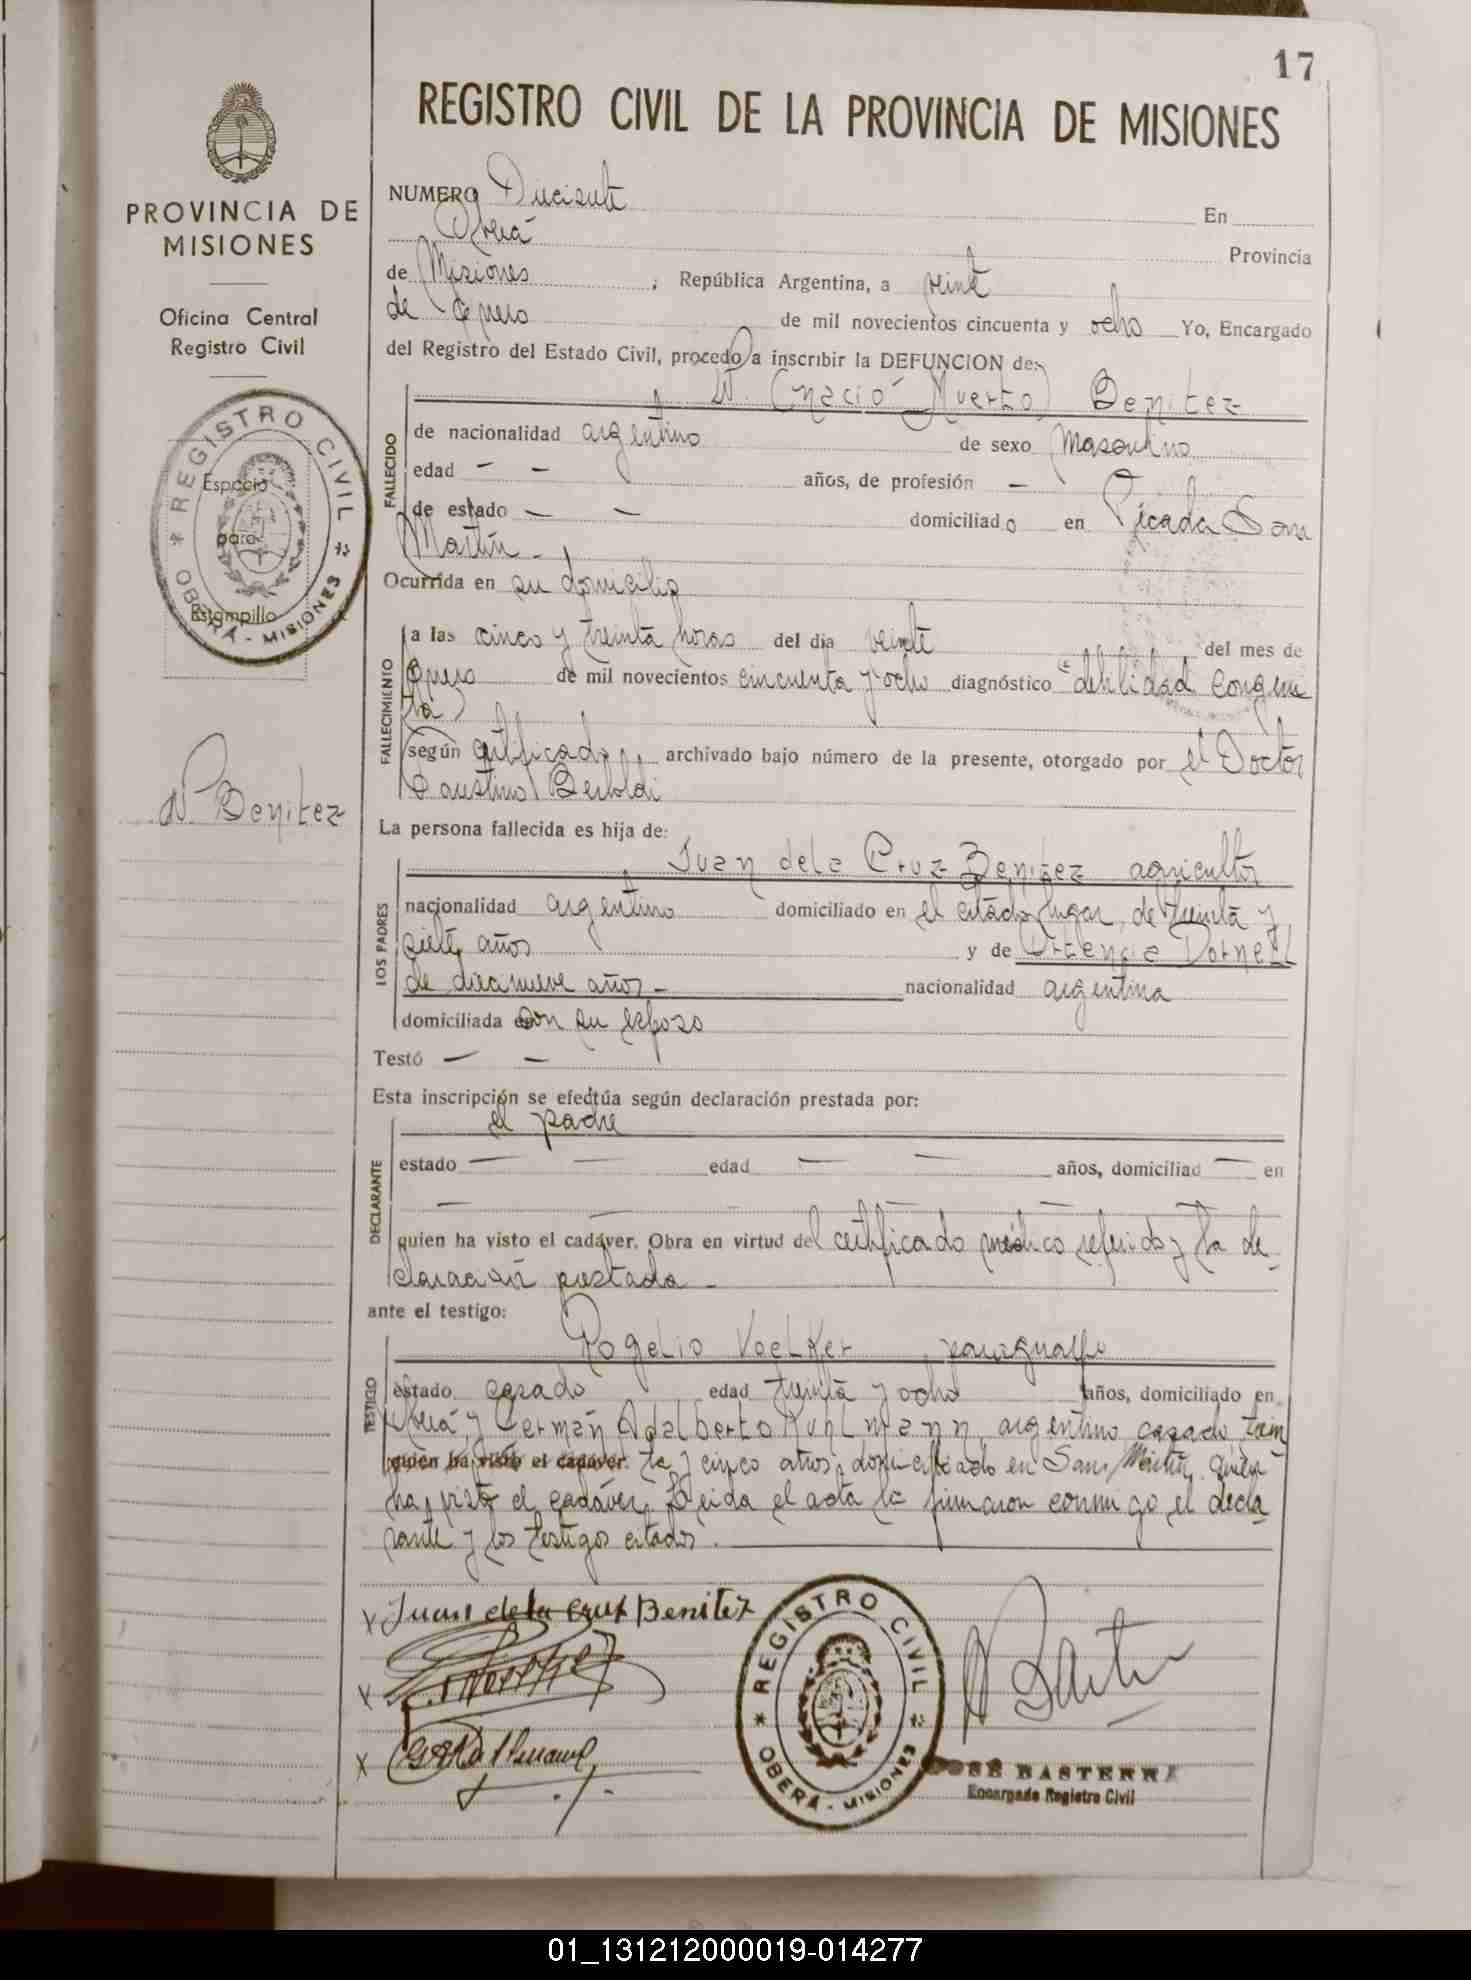 17
REGISTRO CIVIL DE LA PROVINCIA DE MISIONES
PROVINCIA DE
MISIONES
Oficina Central
Registro Civil
REGISTRO CIVIL
OBERÁ - MISIONES
Espacio
para
Estampilla
N Benitez
NUMERO Diecisiete En
Oberá Provincia
de Misiones, República Argentina, a veinte
de Enero de mil novecientos cincuenta y ocho Yo, Encargado
del Registro del Estado Civil, procedo a inscribir la DEFUNCION de:
N. (nació Muerto) Benitez
FALLECIDO
de nacionalidad argentino de sexo Masculino
edad — — años, de profesión —
de estado — — domiciliado en Picada San
Martín -
Ocurrida en su domicilio
FALLECIMIENTO
a las cinco y treinta horas del día veinte del mes de
Enero de mil novecientos cincuenta y ocho diagnóstico "debilidad congeni
ta"
según certificado, archivado bajo número de la presente, otorgado por el Doctor
Faustino Bertoldi
La persona fallecida es hija de:
LOS PADRES
Juan dela Cruz Benitez agricultor
nacionalidad argentino domiciliado en el citado lugar, de treinta y
siete años y de Ortencia Dornell
de diecinueve años - nacionalidad argentina
domiciliada con su esposo
Testó — —
Esta inscripción se efectúa según declaración prestada por:
DECLARANTE
el padre
estado — — edad — — años, domiciliad — en
— — — —
quien ha visto el cadáver. Obra en virtud del certificado médico referido y la de-
claración prestada -
ante el testigo:
TESTIGO
Rogelio Voelker, paraguayo
estado casado edad treinta y ocho años, domiciliado en
Oberá y German Adalberto Kuhlmann, argentino casado, trein
quien ha visto el cadáver. ta y cinco años, domiciliado en San Martín, quien
ha visto el cadáver. Leida el acta la firmaron conmigo el decla
rante y los testigos citados.
x Juan dela Cruz Benitez
x
x
REGISTRO CIVIL
OBERÁ - MISIONES
JOSÉ BASTERRA
Encargado Registro Civil
01_131212000019-014277